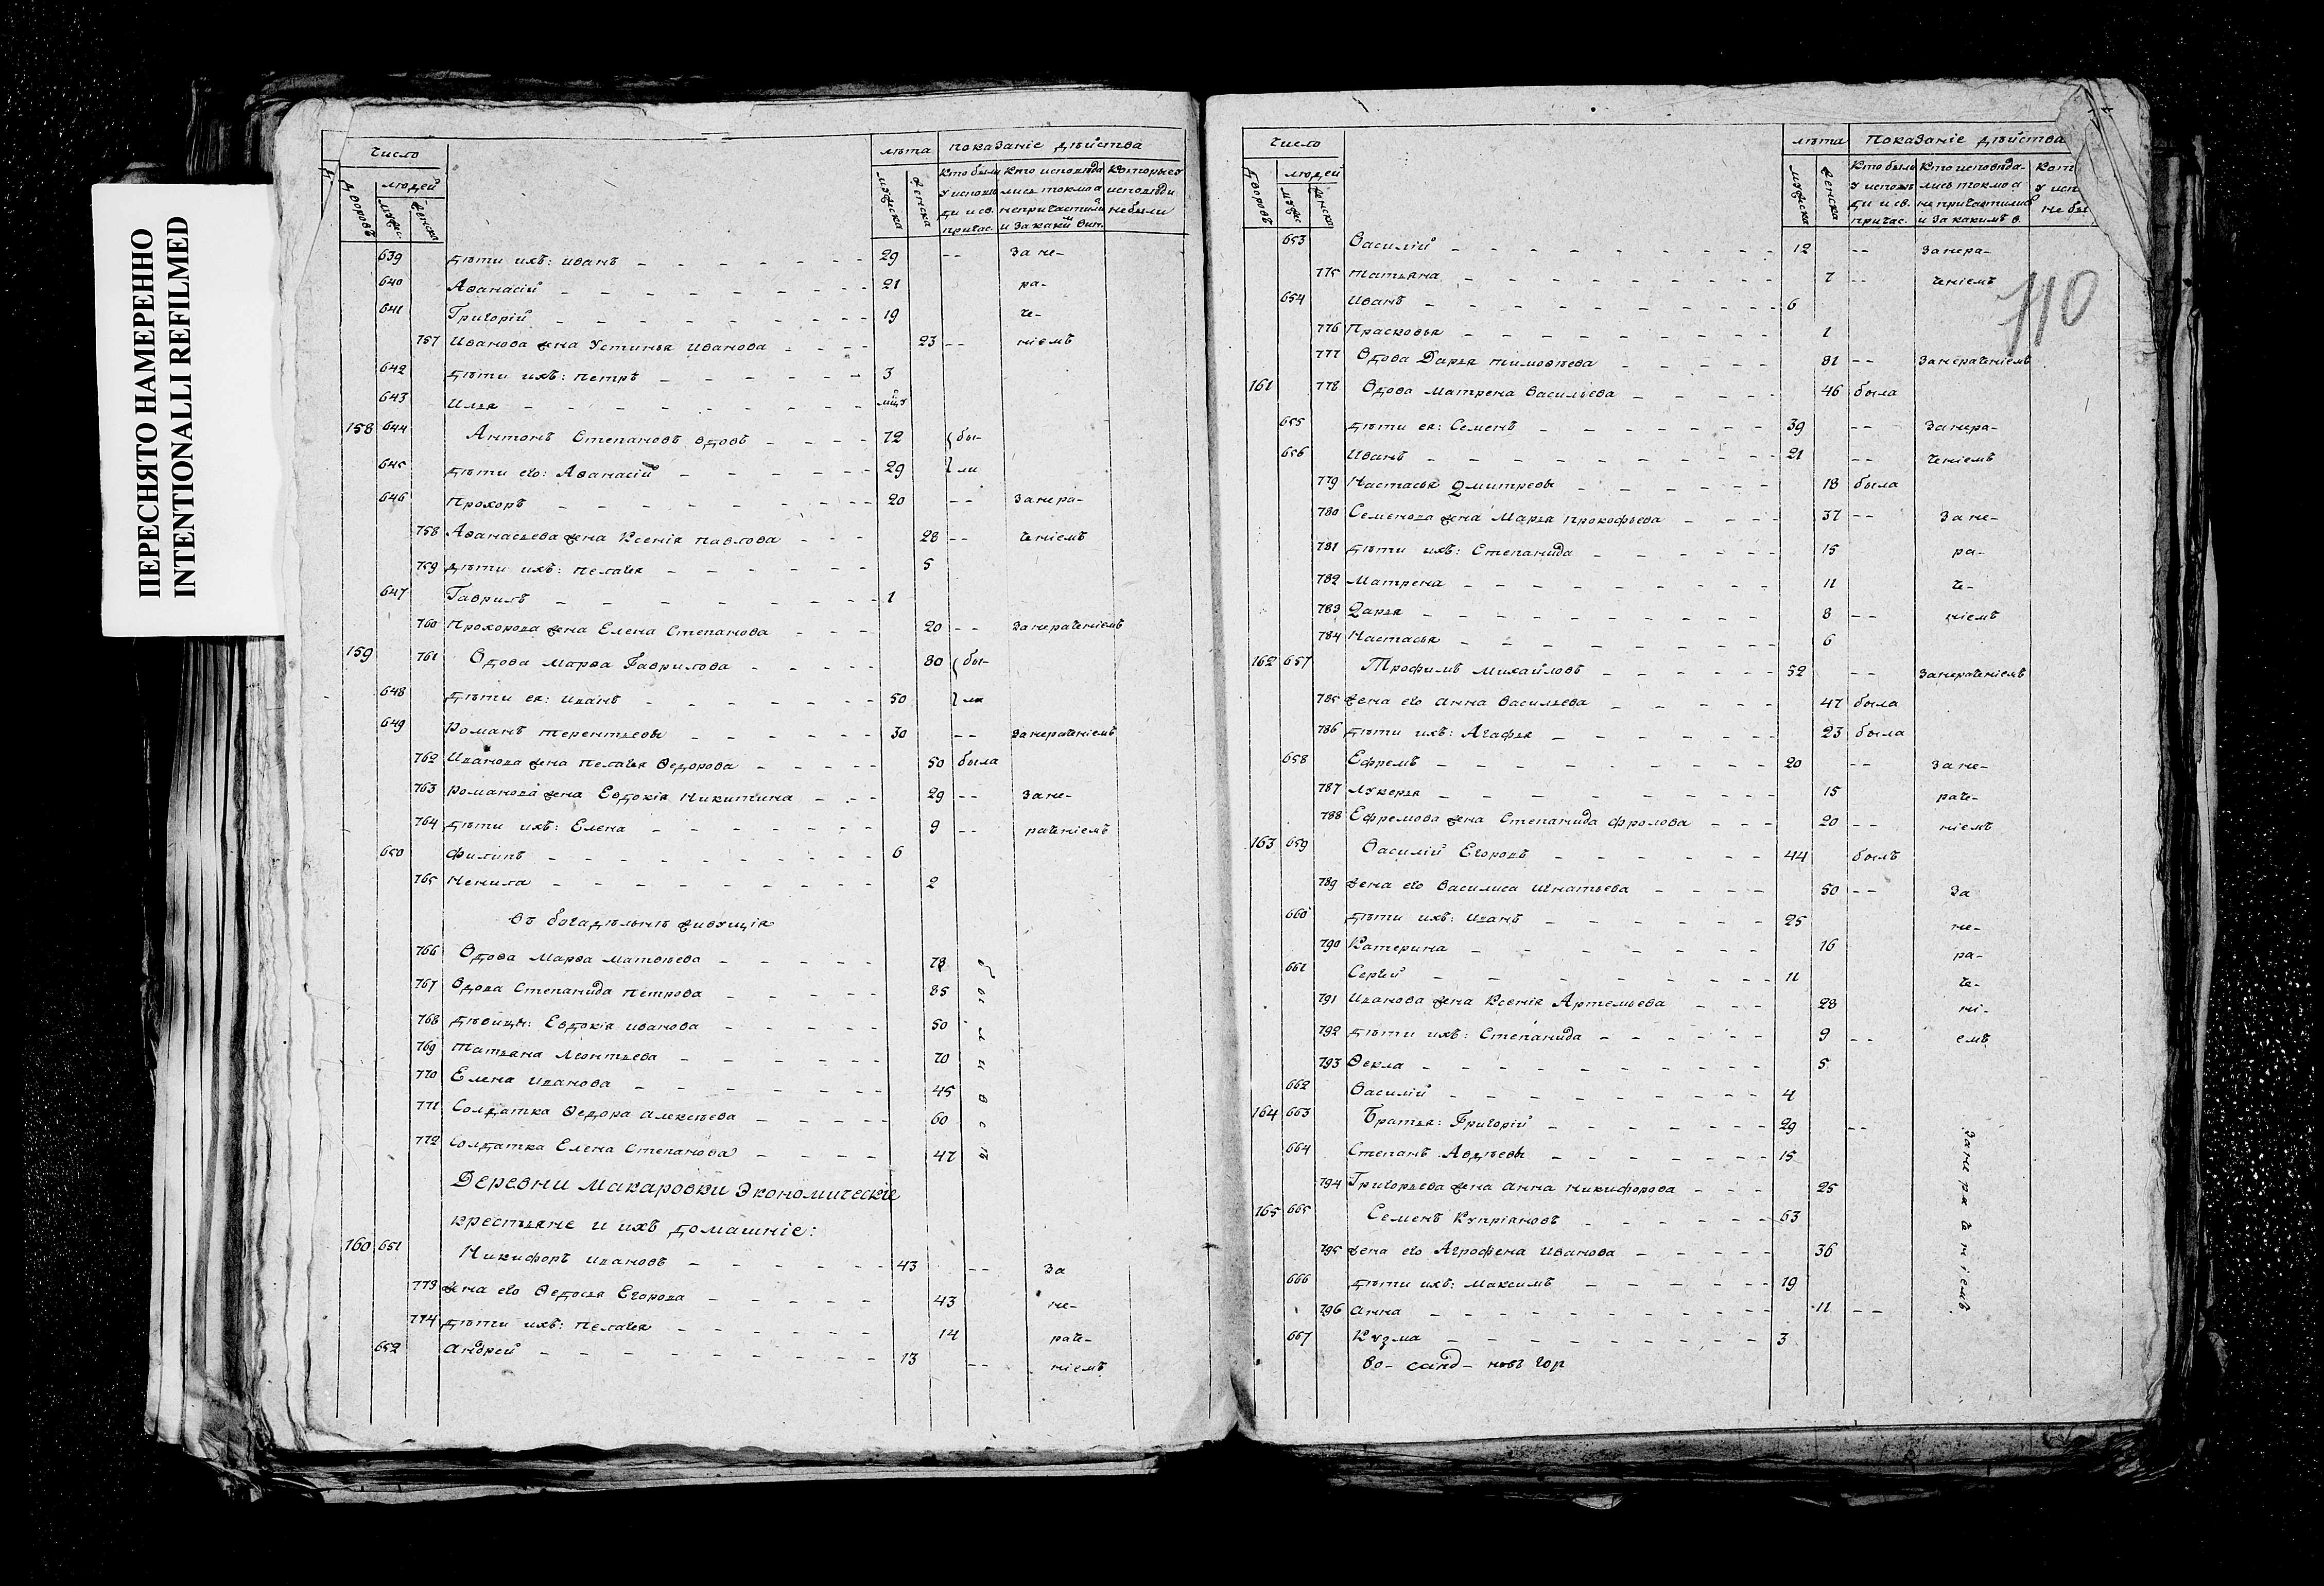 ПЕРЕСНЯТО НАМЕРЕННО
INTENTIONALLI REFILMED
Число лѣта показаніе дѣйства
дворовъ людей мужес. женска мужеска женска
Кто были у исповѣди и св. причас. Кто исповѣдались токмо а непричастили и закакй вин. Которые у исповѣди небыли
639 дѣти ихъ: Иванъ 29 -- За не-
640 Аѳанасій 21 ра-
641 Григорій 19 че-
757 Иванова жена Устинья Иванова 23 -- ніемъ
642 дѣти ихъ: петръ 3
643 Илья
158 644 Антонъ Степановъ вдовъ 72 бы-
645 дѣти его: Аѳанасій 29 ли
646 прохоръ 20 -- Занера-
758 Аѳанасьева жена Ксенія павлова 28 -- ченіемъ
759 дѣти ихъ: пелагея 5
647 Гаврилъ 1
760 прохорова жена Елена Степанова 20 -- Занераченіемъ
159 761 Вдова Марѳа Гаврилова 80 бы-
648 дѣти ея: Иванъ 50 ли
649 Романъ терентьевы 30 -- Занераченіемъ
762 Иванова жена пелагея Ѳедорова 50 была
763 Романова жена Евдокія Никитина 29 -- Зане-
764 дѣти ихъ: Елена 9 -- раченіемъ
650 филипъ 6
765 Ненила 2
Въ богадѣльнѣ живущія
766 Вдова Марѳа Матвѣева 78
767 Вдова Степанида петрова 85
768 дѣвицы: Евдокія Иванова 50
769 татьяна Леонтьева 70
770 Елена Иванова 45
771 Солдатка Ѳедора Алексѣева 60
772 Солдатка Елена Степанова 47
Деревни Макаровки Экономическіе
крестьяне и ихъ домашніе:
160 651 Никифоръ Ивановъ 43 -- За
773 жена его Ѳедосья Егорова 43 не-
774 дѣти ихъ: пелагея 14 раче-
652 Андрей 13 -- ніемъ
Число лѣта показаніе дѣйства
дворовъ людей мужес женска мужеска женска
Кто были у исповѣди и св. причас. Кто исповѣдались токмо а не причастились и за какимъ в. Кот у исп не бы
653 Василій 12 -- Занера-
775 татьяна 7 -- ченіемъ
110
654 Иванъ 6
776 Прасковья 1
777 Вдова Дарья тимоѳѣева 81 -- Занераченіемъ
161 778 Вдова Матрена Васильева 46 была
655 дѣти ея: Семенъ 39 -- Занера-
656 Иванъ 21 -- ченіемъ
779 Настасья Дмитревы 18 была
780 Семенова жена Марья прокофьева 37 -- Зане-
781 дѣти ихъ: Степанида 15 ра-
782 Матрена 11 че-
783 Дарья 8 -- ніемъ
784 Настасья 6
162 657 Трофимъ Михайловъ 52 -- Занераченіемъ
785 жена его Анна Васильева 47 была
786 дѣти ихъ: Агафья 23 была
658 Ефремъ 20 -- Зане-
787 Лукерья 15 раче-
788 Ефремова жена Степанида фролова 20 -- ніемъ
163 659 Василій Егоровъ 44 былъ
789 жена его Василиса Игнатьева 50 -- За
660 дѣти ихъ: Иванъ 25 не-
790 Катерина 16 ра-
661 Сергей 11 че-
791 Иванова жена Ксенія Артемьева 28 ні-
792 дѣти ихъ: Степанида 9 -- емъ
793 Ѳекла 5
662 Василій 4
164 663 Братья: Григорій 29 --
664 Степанъ Авдѣевы 15
Занераченіемъ
794 Григорьева жена Анна Никифорова 25
165 665 Семенъ Купріяновъ 63
795 жена его Агрофена Иванова 36
666 дѣти ихъ: Максимъ 19
796 Анна 11 --
667 Кузма 3